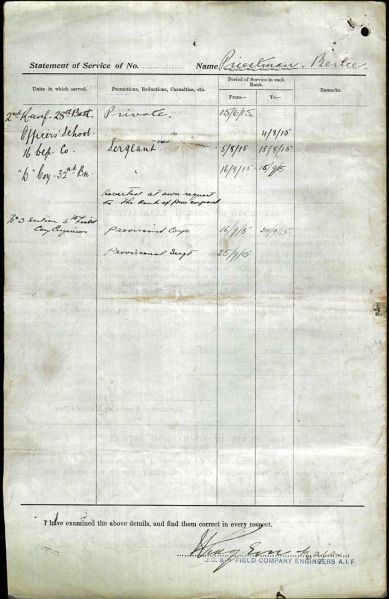 Statement of Service of No. Name Priestman. Bertie
Units in which served. Promotions, Reductions, Casualties, etc. Period of Service in each Rank. Remarks.
From— To—
2nd Reinf- 28th Batt Private. 15/6/15
Officers' School " 4/8/15
16 Dep. Co. Sergeant 5/8/15 15/8/15
"D" Coy - 32nd Bn " 16/8/15 15/9/15
Reverted at own request
to the Rank of
No 3 Section Field
Coy Engineers Provisional Corpl 16/9/15 24/9/15
Provisional Sergt 25/9/15
I have examined the above details, and find them correct in every respect.
Major
FIELD COMPANY ENGINEERS A.I.F.